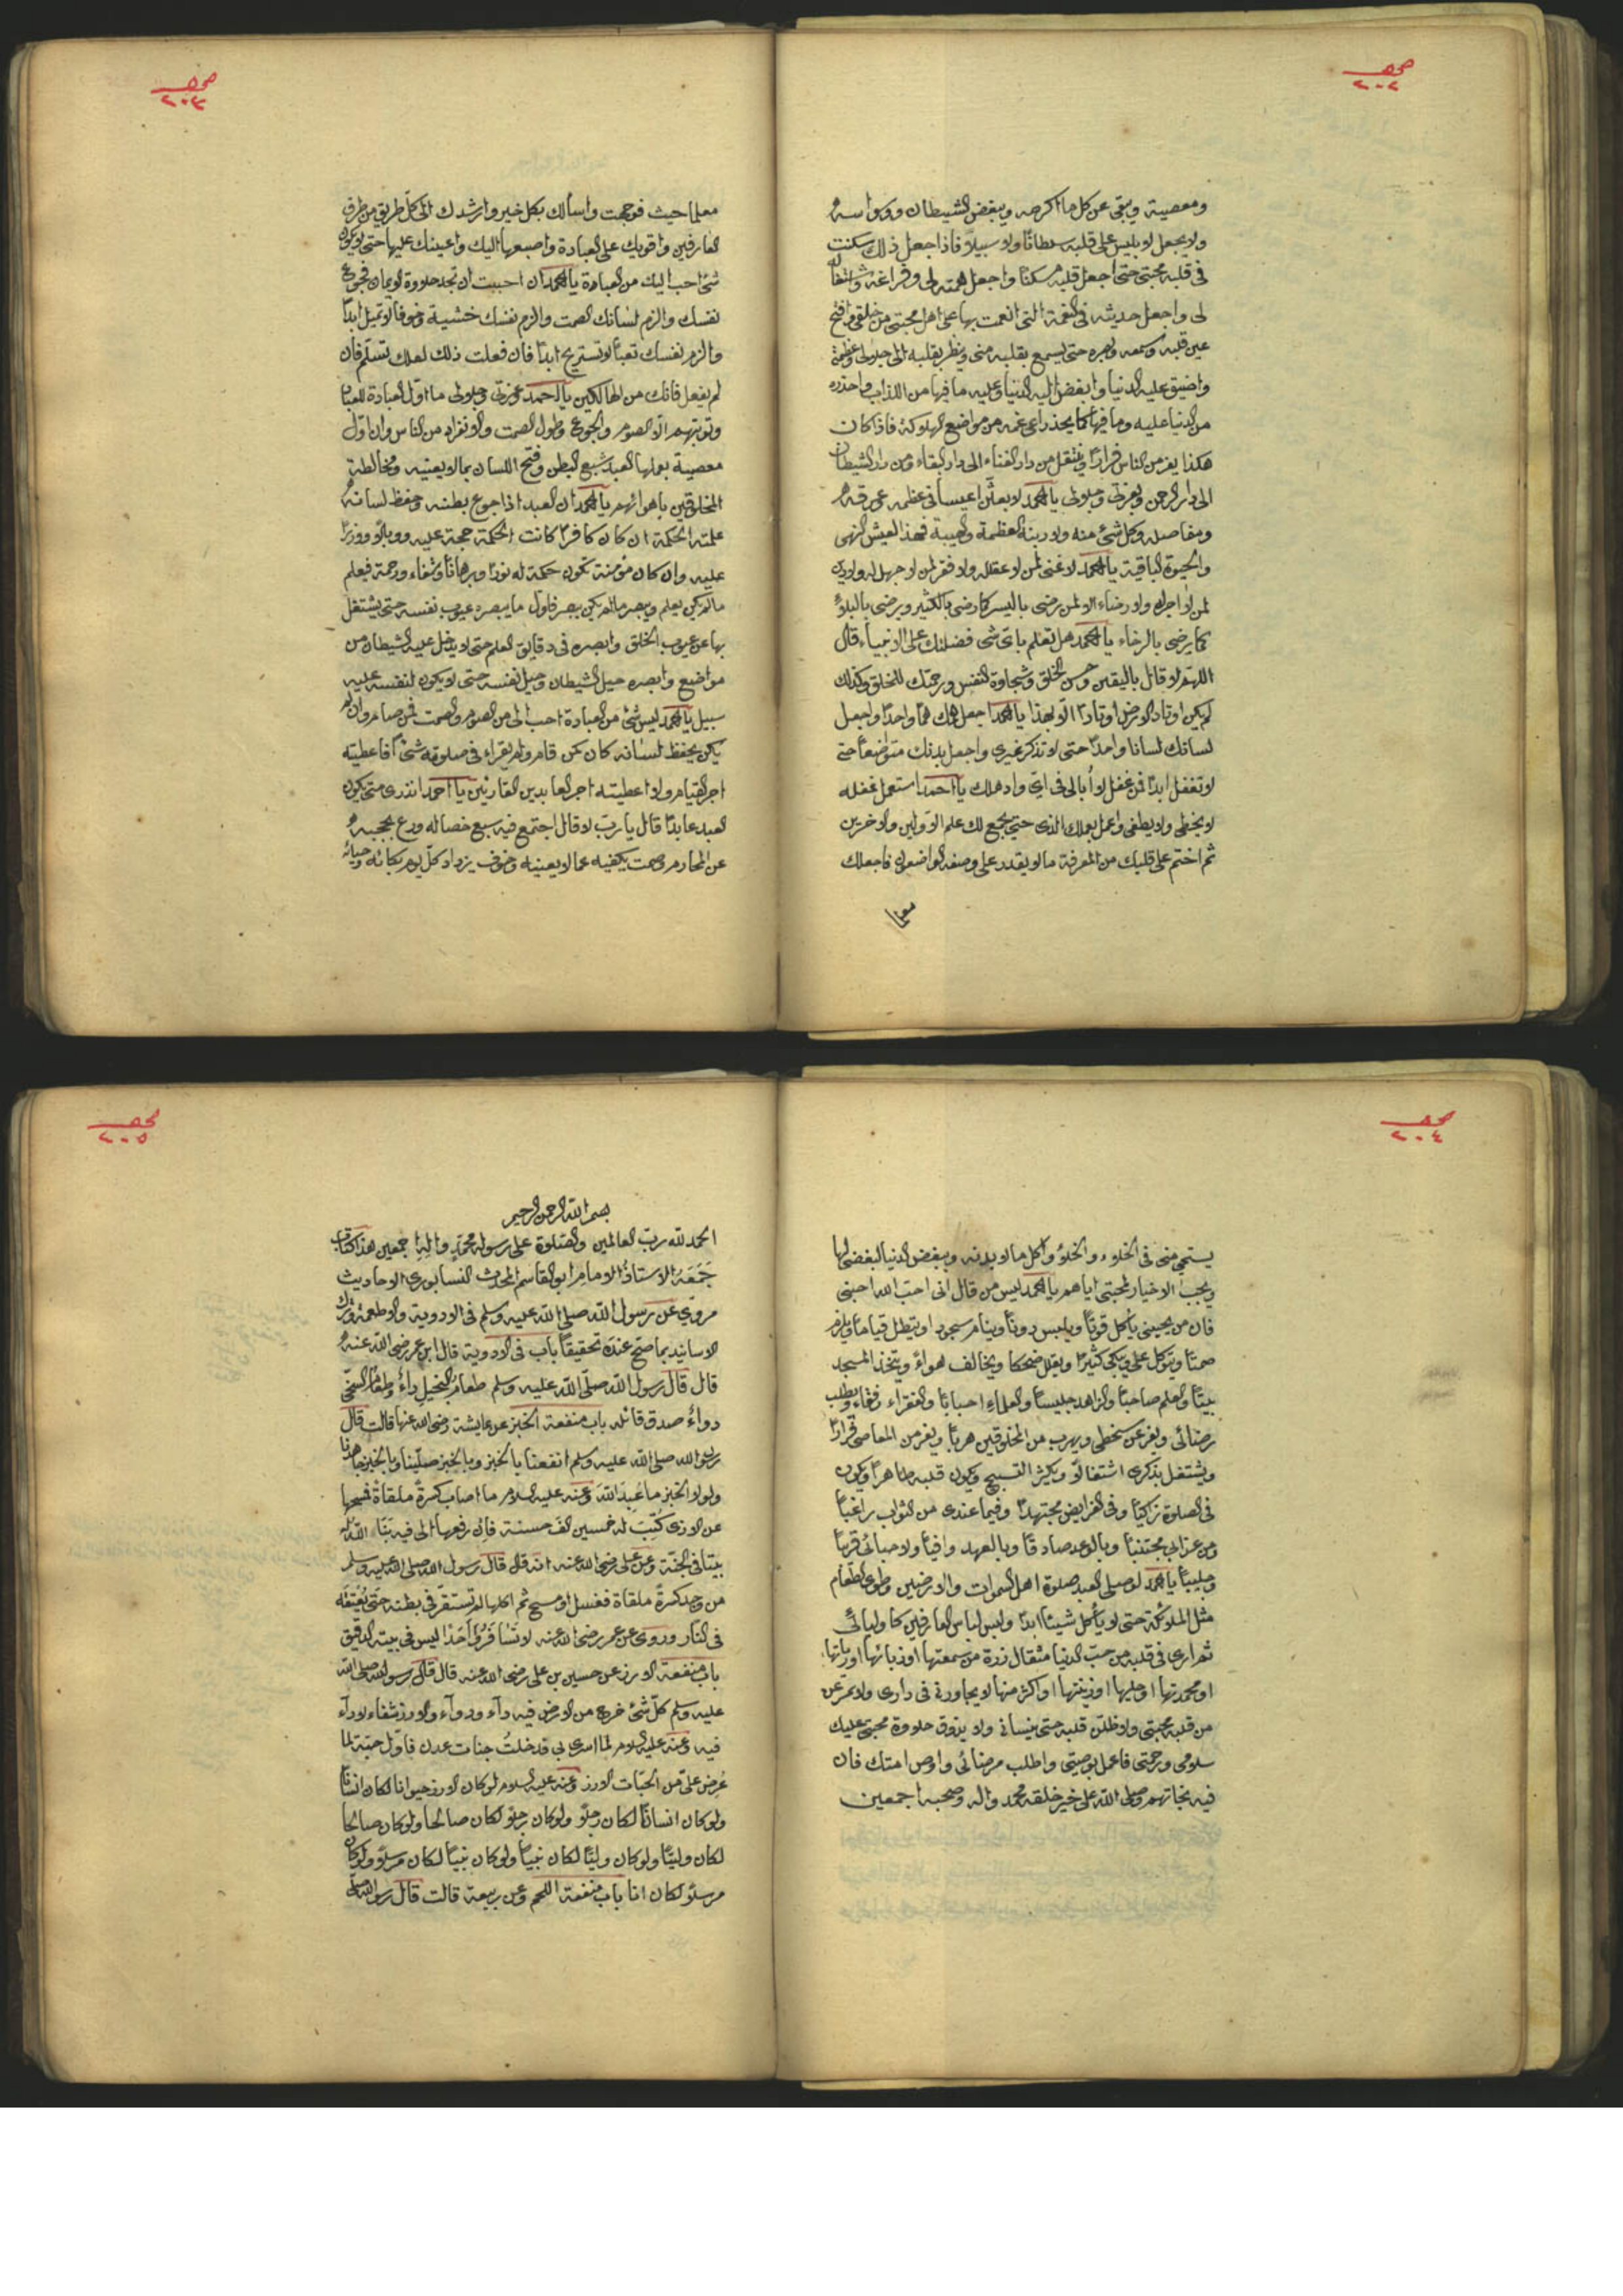 صحيفه
٢٠٢
ومعصية ويبقى عن كل ما اكرهه ويبغض الشيطان ووسواسه
ولا يجعل لابليس على قلبه سلطانًا ولا سبيلًا فاذا جعل ذلك سكنت
فى قلبه محبتى حتى اجعل قلبه مسكنًا واجعل همته لى وفراغه واشتغاله
لى واجعل حديثه فى النعمة التى انعمت بها على اهل محبتى من خلقى وافتح
عين قلبه وسمعه وبصره حتى يسمع بقلبه منى وينظر بقلبه الى جلولى وعظمة
واضيق عليه الدنيا وابغض اليه الدنيا وعليه ما فيها من اللذات واحذره
من الدنيا عليه وما فيها كما يحذر راعى غنمه من مواضع الهلوكة فاذا كان
هكذا يفر من الناس فرارًا وينتقل من دار الفناء الى دار البقاء ومن دار الشيطان
الى دار الرحمن وبعزتى وجلولى يا احمد لا بعثن اعيسا فى عظمه عرقه
ومفاصله وكل شئ منه ولا رينه العظمة والهيبة فهذا العيش الهنى
والحيوة الباقية يا احمد لا غنى لمن لا عقل له ولا فقر لمن لا جهل له ولا دين
لمن لا اجر له ولا رضاء الا لمن رضى باليسر كما رضى بالكثير ويرضى بالبلاء
كما يرضى بالرخاء يا احمد هل تعلم باى شى فضلتك على الانبياء قال
اللهم لا قال باليقين وحسن الخلق وشجاوة النفس ورحمتك للخلق وكذلك
لم يكن اوتاد الارض اوتادًا الا بهذا يا احمد اجعل همك همًا واحدًا واجعل
لسانك لسانا واحدًا حتى لا تذكر غيرى واجعل بدنك متواضعًا حتى
لا تغفل ابدًا فمن غفل لا أبالى فى اى واد هلك يا احمد استعمل عقله
لا يخطى ولا يطغى واعمل بعملك الذى حتى يجمع لك علم الاولين والاخرين
ثم اختم على قلبك من المعرفة ما لا يقدر على وصفه الواضعون فاجعلك
معلما
صحيفه
٢٠٣
معلما حيث توجهت واسألك بكل خير وارشدك الى كل طريق من طرق
العارفين واقويك على العبادة واصبعها اليك واعينك عليها حتى لا يكون
شئ احب اليك من العبادة يا احمد ان احببت ان تجد حلاوة الايمان فجوع
نفسك والزم لسانك الصمت والزم نفسك خشية وخوفا لا تميل ابدًا
والزم نفسك تعبًا لا تستريح ابدًا فان فعلت ذلك لعلك تسلم فان
لم يفعل فانك من الهالكين يا احمد عزتى وجلولى ما اول العبادة للعباد
وتوبتهم الا الصوم والجوع وطول الصمت والانفراد من الناس وان اول
معصية يعملها العبد شبع البطن وفتح اللسان بما لا يعنيه ومخالطة
المخلوقين باهوائهم يا احمد ان العبد اذا جوع بطنه وحفظ لسانه
علمته الحكمة ان كان كافرًا كانت الحكمة حجة عليه ووبالا ووزرًا
عليه وان كان مؤمنة تكون حكمة له نورًا وبرهانًا وشفاء ورحمة فيعلم
ما لم يكن يعلم ويبصر ما لم يكن يبصر فاول ما يبصره عيوب نفسه حتى يشتغل
بها عن عيوب الخلق وابصره فى دقايق العلم حتى لا يدخل عليه الشيطان من
مواضع وابصره حيل الشيطان وحيل نفسه حتى لا يكون لنفسه عليه
سبيل يا احمد ليس شئ من العبادة احب الى من الصوم والصمت فمن صام وان لم
يكن يحفظ لسانه كان كمن قام ولم يقراء فى صلوته شئًا فاعطيته
اجر القيام ولا اعطيته اجر العابدين القارئين يا احمد اتدرى متى يكون
العبد عابدًا قال يا رب لا قال اجتمع فيه سبع خصاله ورع يحجبه
عن المحارم وصمت يكفيه عما لا يعنيه وخوف يزداد كل يوم بكائه وحيائه
صحيفه
٢٠٤
يستحي منى فى الخلوء والخلؤ واكل ما لا بد منه ويبغض الدنيا لبغضى لها
ويحب الاخيار لمحبتى اياهم يا احمد ليس من قال انى احب الله احبنى
فان من يحببنى يأكل قوتًا ويلبس دونًا وينام سجودا ويتطل قيامًا ويلزم
صمتًا ويتوكل على ويبكى كثيرًا ويقلل ضحكا ويخالف هواءً ويتخذ المسجد
بيتًا والعلم صاحبًا والزاهد جليسًا والعلماء احبابًا والفقراء رفقاء ويطلب
رضائى ويفر عن سخطى ويهرب من المخلوقين هربًا ويفر من المعاصى فرارًا
ويشتغل بذكرى اشتغالًا ويكثر التسبيح ويكون قلبه طاهرًا ويكون
فى الصلوة زكيًا وفى الفرايض مجتهدًا وفيما عندى من الثواب راغبًا
ومن عذابى مجتنبًا وبالوعد صادقًا وبالعهد وافيًا ولاحبائى قريبًا
وجليبًا يا احمد لو صلى العبد صلوة اهل السموات والارضين وطوى الطعام
مثل الملائكة حتى لا يأكل شيئًا ابدًا ولبس لباس العارفين كاوليائى
ثم ارى فى قلبه من حب الدنيا مثقال ذرة من سمعتها او ريائها او رياستها
او محمدتها او حليها او زينتها او اكثر منها لا يجاورنى فى دارى ولامرت عن
من قلبه محبتى ولا ظلمن قلبه حتى ينسانى ولا يذوق حلاوة محبتى عليك
سلومى ورحمتى فاعمل بوصيتى واطلب مرضائى واوص امتك فان
فيه نجاتهم وصلى الله على خير خلقه محمد واله وصحبه اجمعين
صحيفه
٢٠٥
بسم الله الرحمن الرحيم
الحمد لله رب العالمين والصلوة على رسوله محمد واله اجمعين هذا كتاب
جَمَعَهُ الاستاذ الامام ابو القاسم المحدث النسابورى الاحاديث
مروى عن رسول الله صلى الله عليه وسلم فى الادوية والاطعمة وترك
الاسانيد بما صح عنده تحقيقًا باب فى الادوية قال ابن عمر رضى الله عنه
قال قال رسول الله صلى الله عليه وسلم طعام البخيل داءٌ وطعام السخى
دواءٌ صدق قائله باب منفعة الخبز عن عايشة رضى الله عنها قالت قال
رسول الله صلى الله عليه وسلم انفعنا بالخبز وبالخبز صلينا وبالخبز جاهدنا
ولولا الخبز ما عبد الله وعنه عليه السلام ما اصاب كسرة ملقاة فمسحها
عن الاذى كُتِبَ له خمسين الف حسنة فان رفعها الى فيه بَنَا الله له
بيتا فى الجنة وعن على رضى الله عنه انه قال قال رسول الله صلى الله عليه وسلم
من وجد كسرةً ملقاة فغسل او مسح ثم اكلها لم تستقر فى بطنه حتى يُعْتِقَه
فى النار وروى عن عمر رضى الله عنه لا تسافروا احدًا ليس فى بيته الدقيق
باب منفعة الارز عن حسين بن على رضى الله عنه قال قال رسول الله صلى الله
عليه وسلم كل شئ خرج من الارض فيه داء ودواء والارز شفاء لا داء
فيه وعنه عليه السلام لما اسرى بى قد خلتُ جنات عدن فاول حبة لما
عُرض على من الحبات الارز وعنه عليه السلام لو كان الارز حيوانا لكان انسانًا
ولو كان انسانًا لكان رجلًا ولو كان رجلًا لكان صالحا ولو كان صالحا
لكان وليًا ولو كان وليًا لكان نبيًا ولو كان نبيًا لكان مرسلًا ولو كان
مرسلًا لكان انا باب منفعة اللحم وعن ربيعة قالت قال رسول الله صلى